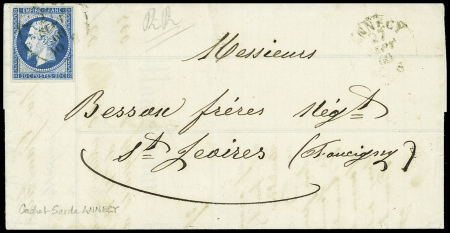 EMPIRE FRANC.
20 C. POSTES 20 C.
ANNECY
Messieurs
Besson frères Négt
St Jeoires (Faucigny)
Cachet Sarde ANNECY